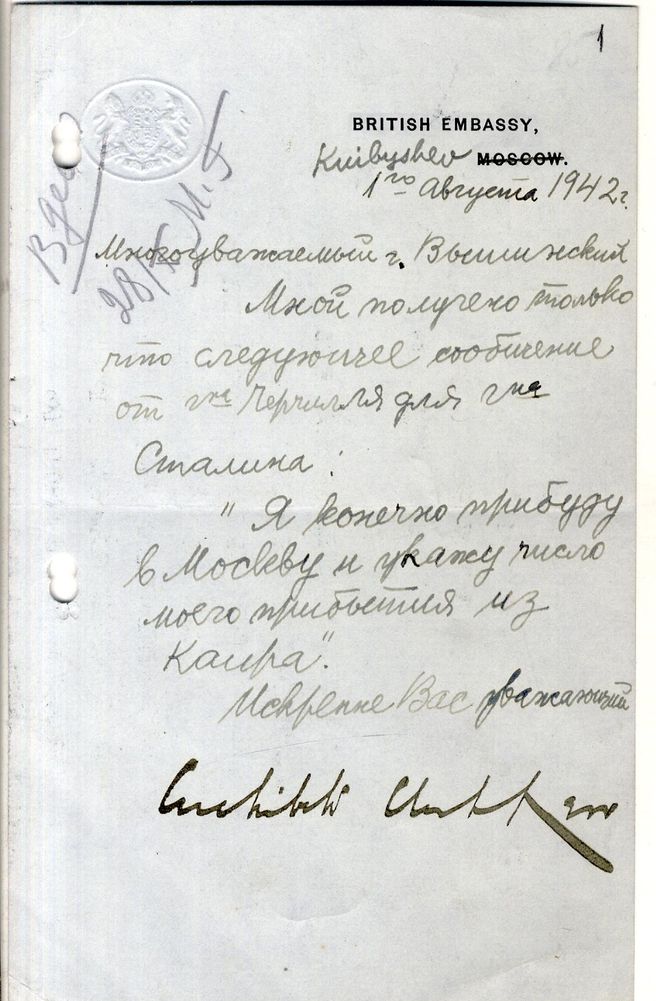 1
BRITISH EMBASSY,
Kuibyshev MOSCOW.
1го Августа 1942 г.
В дело
28/IX М.Г
Многоуважаемый г. Вышинский
Мной получено только
что следующее сообщение
от гна Черчилля для гна
Сталина:
" Я конечно прибуду
в Москву и укажу число
моего прибытия из
Каира".
Искренне Вас уважающий